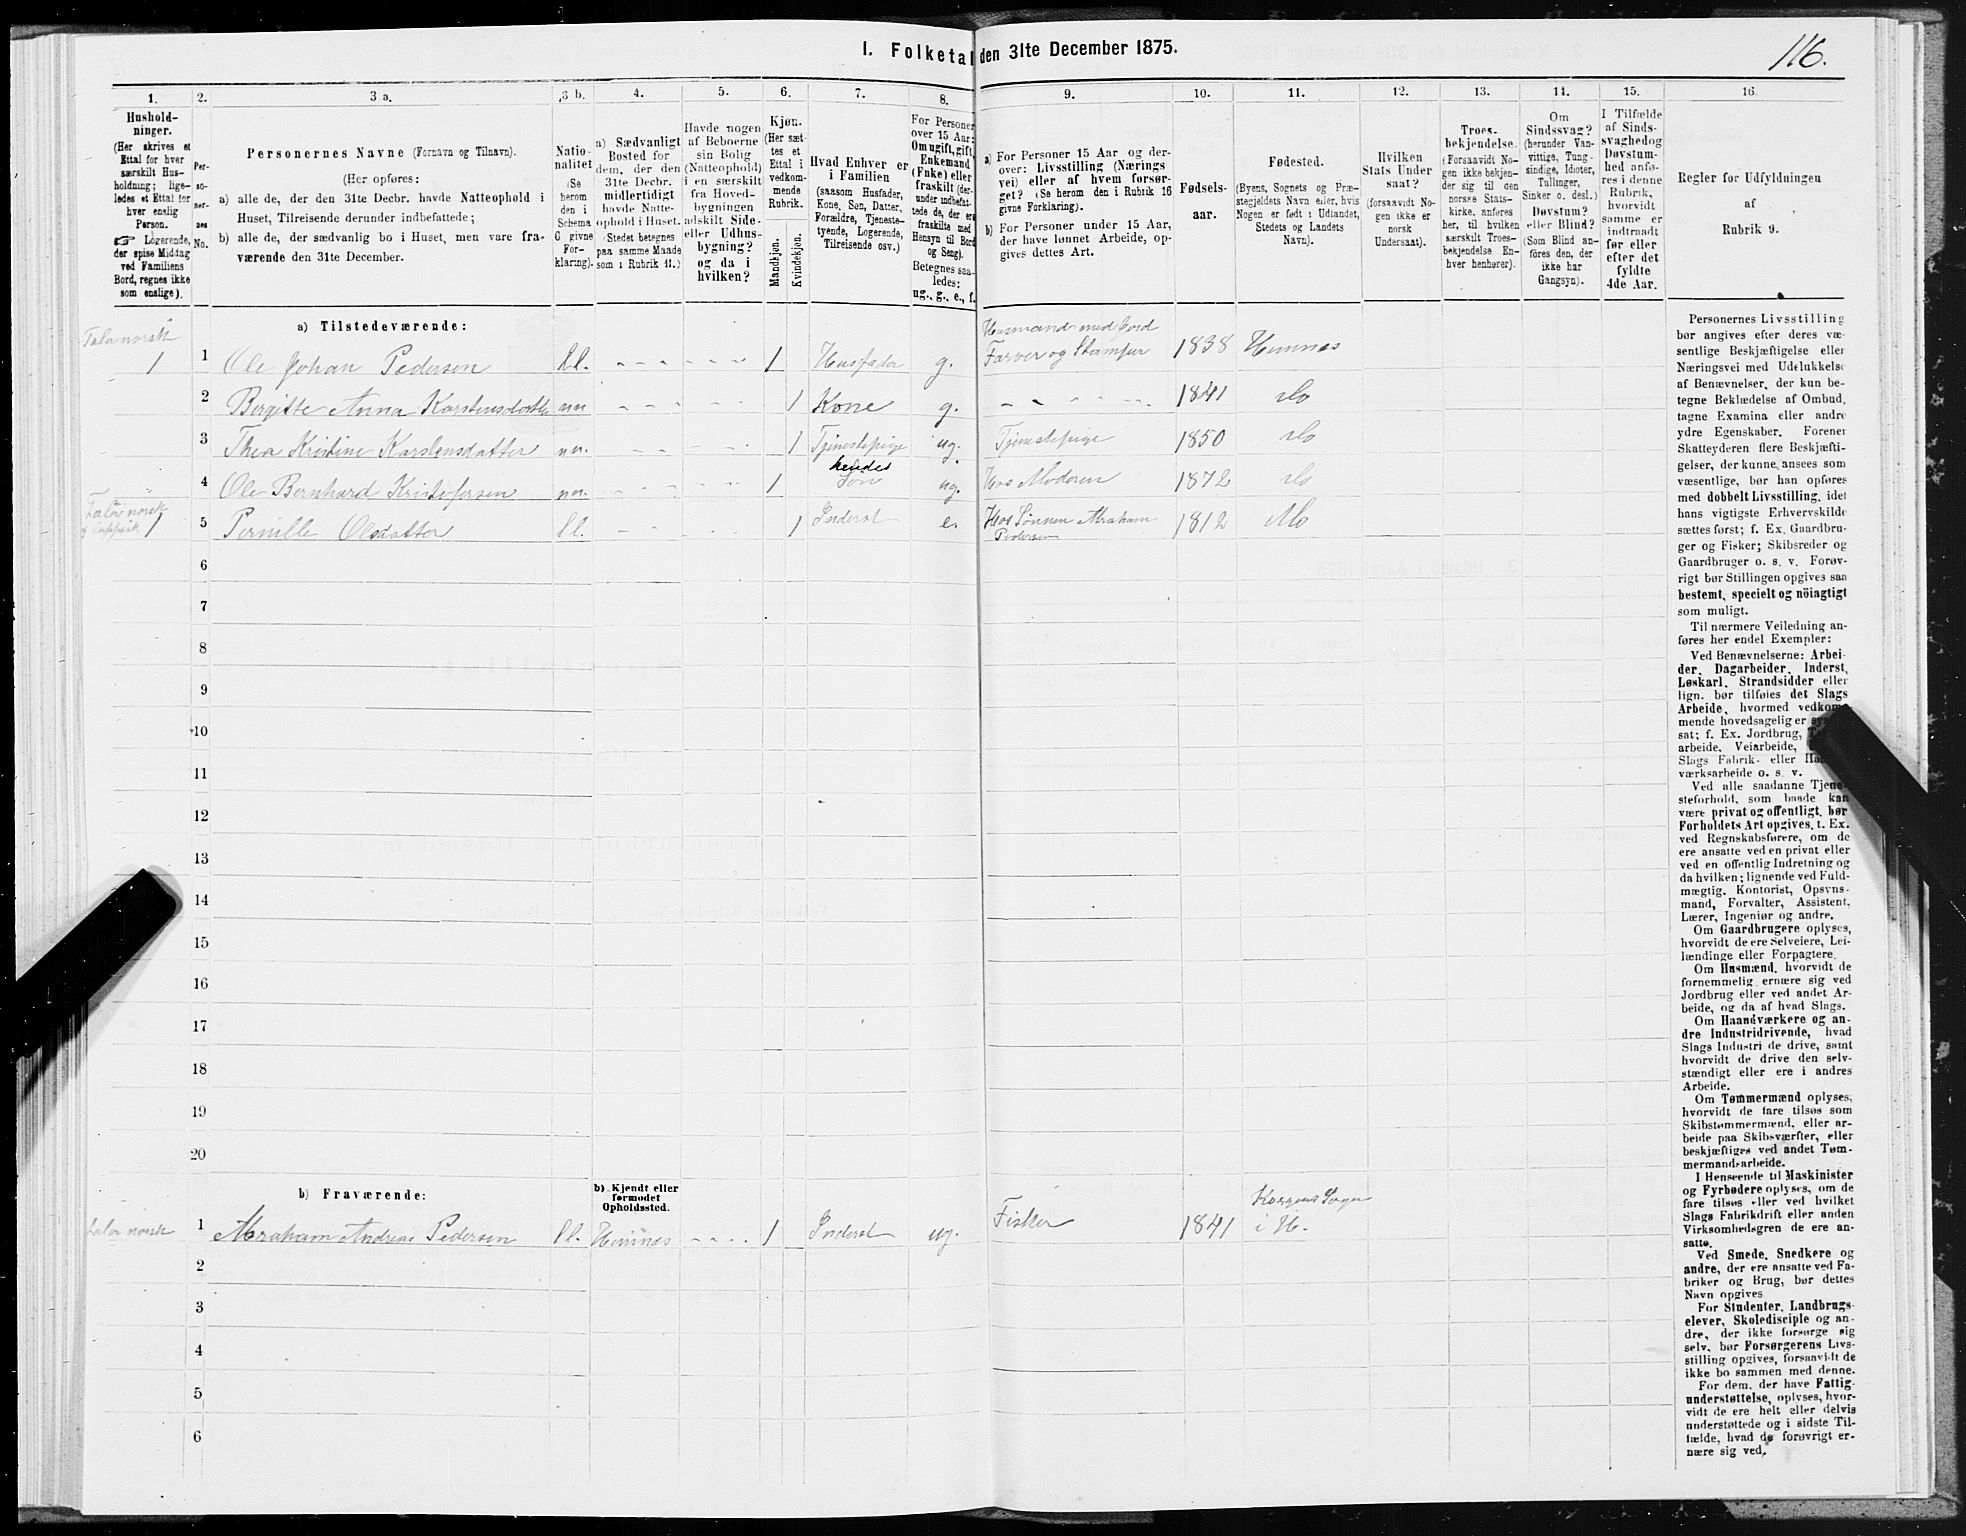 I. Folketal den 31te December 1875.
116.
1.
2.
3 a.
3 b.
4.
5.
6.
7.
8.
9.
10.
11.
12.
13.
14.
15.
16.
Hushold-
ninger.
(Her skrives et
Ettal for hver
særskilt Hus-
holdning; lige-
ledes et Ettal for
hver enslig
Person.
☞ Logerende,
der spise Middag
ved Familiens
Bord, regnes ikke
som enslige).
Per-
so-
ner-
nes
No.
Personernes Navne (Fornavn og Tilnavn).
(Her opføres:
a) alle de, der den 31te Decbr. havde Natteophold i
Huset, Tilreisende derunder indbefattede;
b) alle de, der sædvanlig bo i Huset, men vare fra-
værende den 31te December.
Natio-
nalitet
(Se
herom
den i
Schema
C givne
For-
klaring).
a) Sædvanligt
Bosted for
dem, der den
31te Decbr.
midlertidigt
havde Natte-
ophold i Huset.
(Stedet betegnes
paa samme Maade
som i Rubrik 11.)
Havde nogen
af Beboerne
sin Bolig
(Natteophold)
i en særskilt
fra Hoved-
bygningen
adskilt Side-
eller Udhus-
bygning?
og da i
hvilken?
Kjøn.
(Her sæt-
tes et
Ettal i
vedkom-
mende
Rubrik.
Mandkjøn.
Kvindekjøn.
Hvad Enhver er
i Familien
(saasom Husfader,
Kone, Søn, Datter,
Forældre, Tjeneste-
tyende, Logerende,
Tilreisende osv.)
For Personer
over 15 Aar:
Om ugift, gift,
Enkemand
(Enke) eller
fraskilt (der-
under indbefat-
tede de, der ere
fraskilte med
Hensyn til Bord
og Seng).
Betegnes saa-
ledes:
ug., g., e., f.
a) For Personer 15 Aar og der-
over: Livsstilling (Nærings-
vei) eller af hvem forsør-
get? (Se herom den i Rubrik 16
givne Forklaring).
b) For Personer under 15 Aar,
der have lønnet Arbeide, op-
gives dettes Art.
Fødsels-
aar.
Fødested.
(Byens, Sognets og Præ-
stegjeldets Navn eller, hvis
Nogen er født i Udlandet,
Stedets og Landets
Navn).
Hvilken
Stats Under
saat?
(forsaavidt No-
gen ikke er
norsk
Undersaat).
Troes-
bekjendelse.
(Forsaavidt No-
gen ikke bekjen-
der sig til den
norske Stats-
kirke, anføres
her, til hvilken
særskilt Troes-
bekjendelse En-
hver henhører).
Om
Sindssvag?
(herunder Van-
vittige, Tung-
sindige, Idioter,
Tullinger,
Sinker o. desl.)
Døvstum?
eller Blind?
(Som Blind an-
føres den, der
ikke har
Gangsyn).
I Tilfælde
af Sinds-
svaghed og
Døvstum-
hed anfø-
res i denne
Rubrik,
hvorvidt
samme er
indtraadt
før eller
efter det
fyldte
4de Aar.
Regler for Udfyldningen
af
Rubrik 9.
a) Tilstedeværende:
Taler norsk
1
1 Ole Johan Pedersen ll. 1 Husfader g. Husmand med Jord Farver og Stamper 1838 Hemnæs
2 Bergitte Anna Karstensdatter nn 1 Kone g. 1841 do
3 Thea Kristine Karstensdatter nn. 1 Tjenestepige ug. Tjenestepige 1850 do
4 Ole Bernhard Kristofersen nn. 1 hendes Søn ug. Hos Moderen 1872 do
Taler norsk
1
5 Pernille Olsdatter ll. 1 Inderst e. Hos Sønnen Abraham Pedersen 1812 Mo
6
7
8
9
10
11
12
13
14
15
16
17
18
19
20
b) Fraværende:
b) Kjendt eller
formodet
Opholdssted.
Taler norsk 1 Abraham Andreas Pedersen ll. Hemnæs 1 Inderst ug. Fisker 1841 Korgens Sogn i H.
2
3
4
5
6
Personernes Livsstilling
bør angives efter deres væ-
sentlige Beskjæftigelse eller
Næringsvei med Udelukkelse
af Benævnelser, der kun be-
tegne Beklædelse af Ombud,
tagne Examina eller andre
ydre Egenskaber. Forener
Skatteyderen flere Beskjæfti-
gelser, der kunne ansees som
væsentlige, bør han opføres
med dobbelt Livsstilling, idet
hans vigtigste Erhvervskilde
sættes først; f. Ex. Gaardbru-
ger og Fisker; Skibsreder og
Gaardbruger o. s. v. Forøv-
rigt bør Stillingen opgives saa
bestemt, specielt og nöiagtigt
som muligt.
Til nærmere Veiledning an-
føres her endel Exempler:
Ved Benævnelserne: Arbei-
der, Dagarbeider, Inderst,
Løskarl, Strandsidder eller
lign. bør tilføies det Slags
Arbeide, hvormed vedkom-
mende hovedsagelig er
sat; f. Ex. Jordbrug,
arbeide, Veiarbeide,
Slags Fabrik- eller
værksarbeide o. s. v.
Ved alle saadanne Tjene-
steforhold, som baade kan
være privat og offentligt, bør
Forholdets Art opgives, t. Ex.
ved Regnskabsførere, om de
ere ansatte ved en privat eller
ved en offentlig Indretning og
da hvilken; lignende ved Fuld-
mægtig, Kontorist, Opsyns-
mand, Forvalter, Assistent,
Lærer, Ingeniør og andre.
Om Gaardbrugere oplyses,
hvorvidt de ere Selveiere, Lei-
lændinge eller Forpagtere.
Om Husmænd, hvorvidt de
fornemmelig ernære sig ved
Jordbrug eller ved andet Ar-
beide, og da af hvad Slags.
Om Haandværkere og an-
dre Industridrivende, hvad
Slags Industri de drive, samt
hvorvidt de drive den selv-
stændigt eller ere i andres
Arbeide.
Om Tømmermænd oplyses,
hvorvidt de fare tilsøs som
Skibstømmermænd, eller ar-
beide paa Skibsværfter, eller
beskjæftiges ved andet Tøm-
mermandsarbeide.
I Henseende til Maskinister
og Fyrbødere oplyses, om de
fare tilsøs eller ved hvilket
Slags Fabrikdrift eller anden
Virksomhedsgren de ere an-
satte.
Ved Smede, Snedkere og
andre, der ere ansatte ved Fa-
briker og Brug, bør dettes
Navn opgives
For Studenter, Landbrugs-
elever, Skoledisciple og an-
dre, der ikke forsørge sig
selv, bør Forsørgerens Livs-
stilling opgives, forsaavidt de
ikke bo sammen med denne.
For dem, der have Fattig-
understøttelse, oplyses, hvor-
vidt de ere helt eller delvis
understøttede og i sidste Til-
fælde, hvad de forøvrigt er-
nære sig ved.